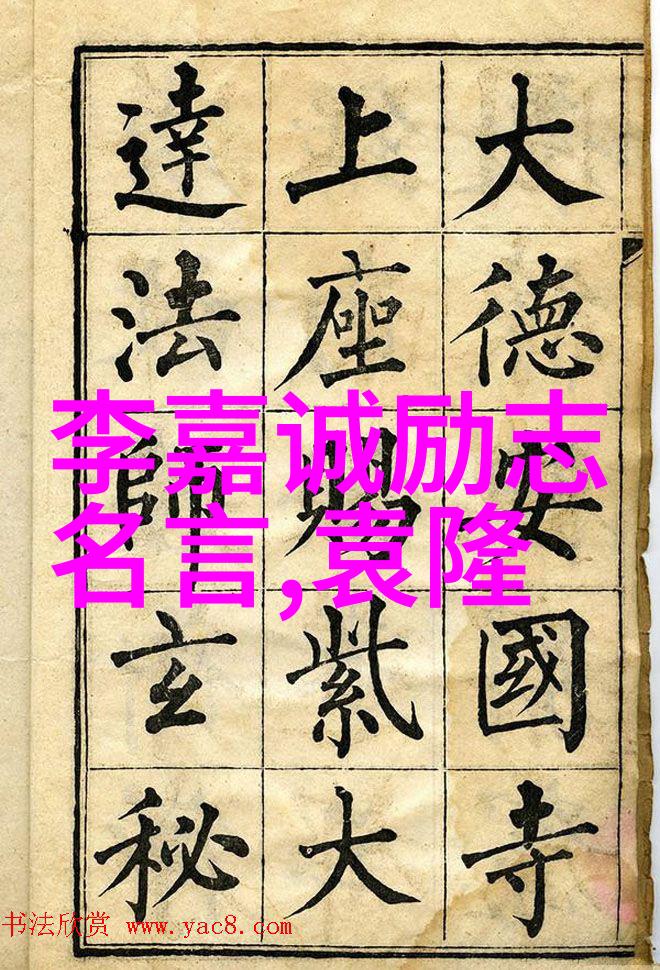 大德安國寺
上座賜紫大
達法師玄秘
李嘉诚励志
名言,袁隆
书法欣赏 www.yac8.com